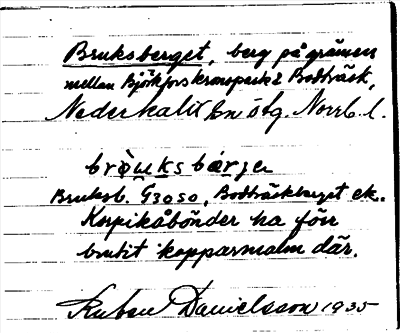 Bruksberget, berg på gränsen
mellan Björkfors kronopark & Bodträsk,
Nederkalix sn östg. Norrb. l.
bròuksbærjer
Bruksb. G3050, Bodträskberget ek.
Korpikåbönder ha förr
brutit kopparmalm där.
Ruben Danielsson 1935